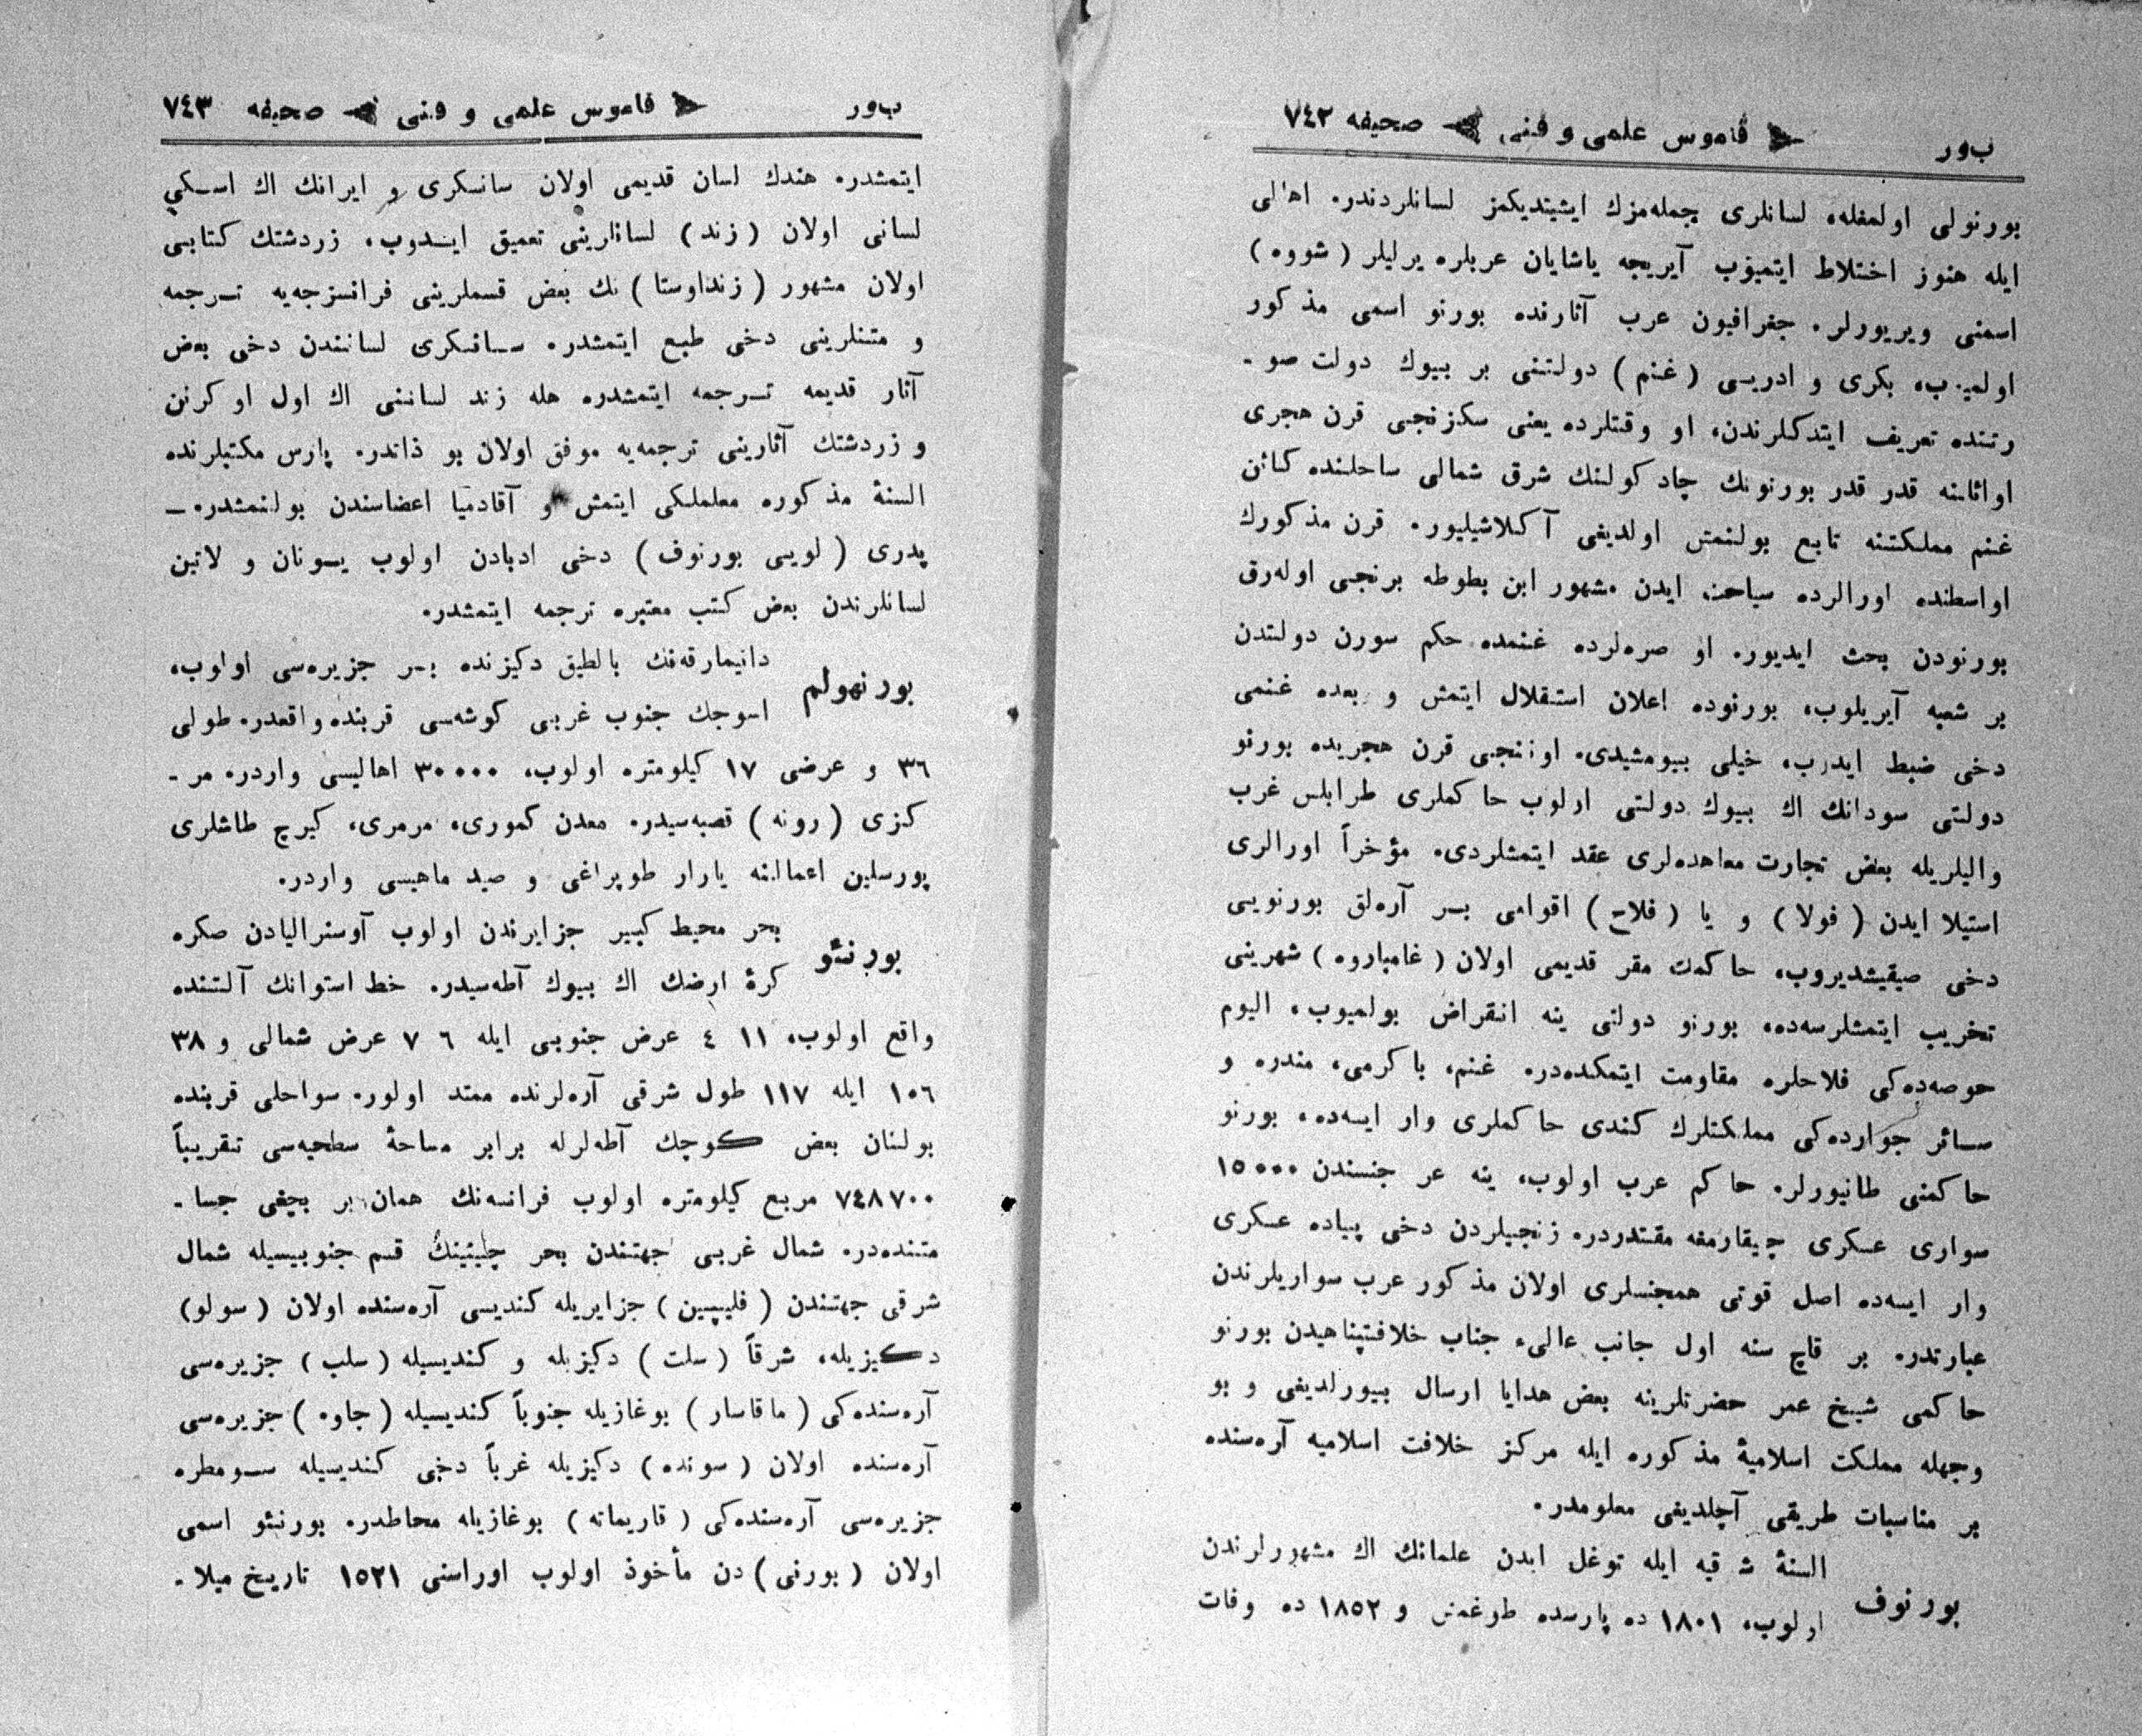 ب‌ور قاموس علمی و فنی صحیفه ٧٤٢
بورنولی اولمغله، لسانلری جمله‌مزك ایشیتدیكمز لسانلردندر. اهالی
ایله هنوز اختلاط ایتمیوب آیریجه یاشایان عربلره یرلیلر ( شووه )
اسمنی ویریورلر. جغرافیون عرب آثارنده بورنو اسمی مذكور
اولمیوب، بكری و ادریسی ( غنم ) دولتنی بر بیوك دولت صو -
رتنده تعریف ایتدكلرندن، او وقتلرده یعنی سكزنجی قرن هجری
اوائلنه قدر قدر بورنونك چاد كولنك شرق شمالی ساحلنده كائن
غنم مملكتنه تابع بولنمش اولدیغی آكلاشیلیور. قرن مذكورك
اواسطنده اورالرده سیاحت ایدن مشهور ابن بطوطه برنجی اوله‌رق
بورنودن بحث ایدیور. او صره‌لرده غنمده حكم سورن دولتدن
بر شعبه آیریلوب، بورنوده اعلان استقلال ایتمش و بعده غنمی
دخی ضبط ایدرب، خیلی بیومشیدی. اوننجی قرن هجریده بورنو
دولتی سودانك اك بیوك دولتی اولوب حاكملری طرابلس غرب
والیلریله بعض تجارت معاهده‌لری عقد ایتمشلردی. مؤخراً اورالری
استیلا ایدن ( فولا ) و یا ( فلاح ) اقوامی بر آره‌لق بورنویی
دخی صیقیشدیروب، حاكمك مقر قدیمی اولان ( غامباروه ) شهرینی
تخریب ایتمشلرسه‌ده، بورنو دولتی ینه انقراض بولمیوب، الیوم
حوصه‌ده‌كی فلاحلره مقاومت ایتمكده‌در. غنم، باكرمی، مندره و
سائر جوارده‌كی مملكتلرك كندی حاكملری وار ایسه‌ده، بورنو
حاكمنی طانیورلر. حاكم عرب اولوب، ینه عر جنسندن ١٥٠٠٠
سواری عسكری چیقارمغه مقتدردر. زنجیلردن دخی پیاده عسكری
وار ایسه‌ده اصل قوتی همجنسلری اولان مذكور عرب سواریلرندن
عبارتدر. بر قاچ سنه اول جانب عالیء جناب خلافتپناهیدن بورنو
حاكمی شیخ عمر حضرتلرینه بعض هدایا ارسال بیورلدیغی و بو
وجهله مملكت اسلامیهٔ مذكوره ایله مركز خلافت اسلامیه آره‌سنده
بر مناسبات طریقی آچلدیغی معلومدر.
بورنوف
السنهٔ ش قیه ایله توغل ایدن علمانك اك مشهورلرندن
اولوب، ١٨٠١ ده پارسده طوغمش و ١٨٥٢ ده وفات
ب‌ور قاموس علمی و فنی صحیفه ٧٤٣
ایتمشدر. هندك لسان قدیمی اولان سانسكری و ایرانك اك اسكی
لسانی اولان ( زند ) لسانلرینی تعمیق ایدوب، زردشتك كتابی
اولان مشهور ( زنداوستا ) نك بعض قسملرینی فرانسزجه‌یه ترجمه
و متنلرینی دخی طبع ایتمشدر. سانسكری لسانندن دخی بعض
آثار قدیمه ترجمه ایتمشدر. هله زند لساننی اك اول اوكرنن
و زردشتك آثارینی ترجمه‌یه موفق اولان بو ذاتدر. پارس مكتبلرنده
السنهٔ مذكوره معلملكی ایتمش و آقادمیا اعضاسندن بولنمشدر. —
پدری ( لویی بورنوف ) دخی ادبادن اولوب یونان و لاتین
لسانلرندن بعض كتب معتبره ترجمه ایتمشدر.
بورنهولم
دانیمارقه‌نك بالطیق دكیزنده بر جزیره‌سی اولوب،
اسوجك جنوب غربی كوشه‌سی قربنده واقعدر. طولی
٣٦ و عرضی ١٧ كیلومتره اولوب، ٣٠٠٠٠ اهالیسی واردر. مر -
كزی ( رونه ) قصبه‌سیدر. معدن كموری، مرمری، كیرج طاشلری
پورسلین اعمالنه یارار طوپراغی و صید ماهیسی واردر.
بورنئو
بحر محیط كبیر جزایرندن اولوب آوسترالیادن صكره
كرهٔ ارضك اك بیوك آطه‌سیدر. خط استوانك آلتنده
واقع اولوب، ١١ ٤ عرض جنوبی ایله ٦ ٧ عرض شمالی و ٣٨
١٠٦ ایله ١١٧ طول شرقی آره‌لرنده ممتد اولور. سواحلی قربنده
بولنان بعض كوچك آطه‌لرله برابر مساحهٔ سطحیه‌سی تقریباً
٧٤٨٧٠٠ مربع كیلومتره اولوب فرانسه‌نك همان بر بچغی جسا -
متنده‌در. شمال غربی جهتندن بحر چینینك قسم جنوبیسیله شمال
شرقی جهتندن ( فلیپین ) جزایریله كندیسی آره‌سنده اولان ( سولو )
دكیزیله، شرقاً ( سلت ) دكیزیله و كندیسیله ( سلب ) جزیره‌سی
آره‌سنده‌كی ( ماقاسار ) بوغازیله جنوباً كندیسیله ( جاوه ) جزیره‌سی
آره‌سنده اولان ( سونده ) دكیزیله غرباً دخی كندیسیله سومطره
جزیره‌سی آره‌سنده‌كی ( قاریماته ) بوغازیله محاطدر. بورنئو اسمی
اولان ( بورنی ) دن مأخوذ اولوب اوراسنی ١٥٢١ تاریخ میلا -